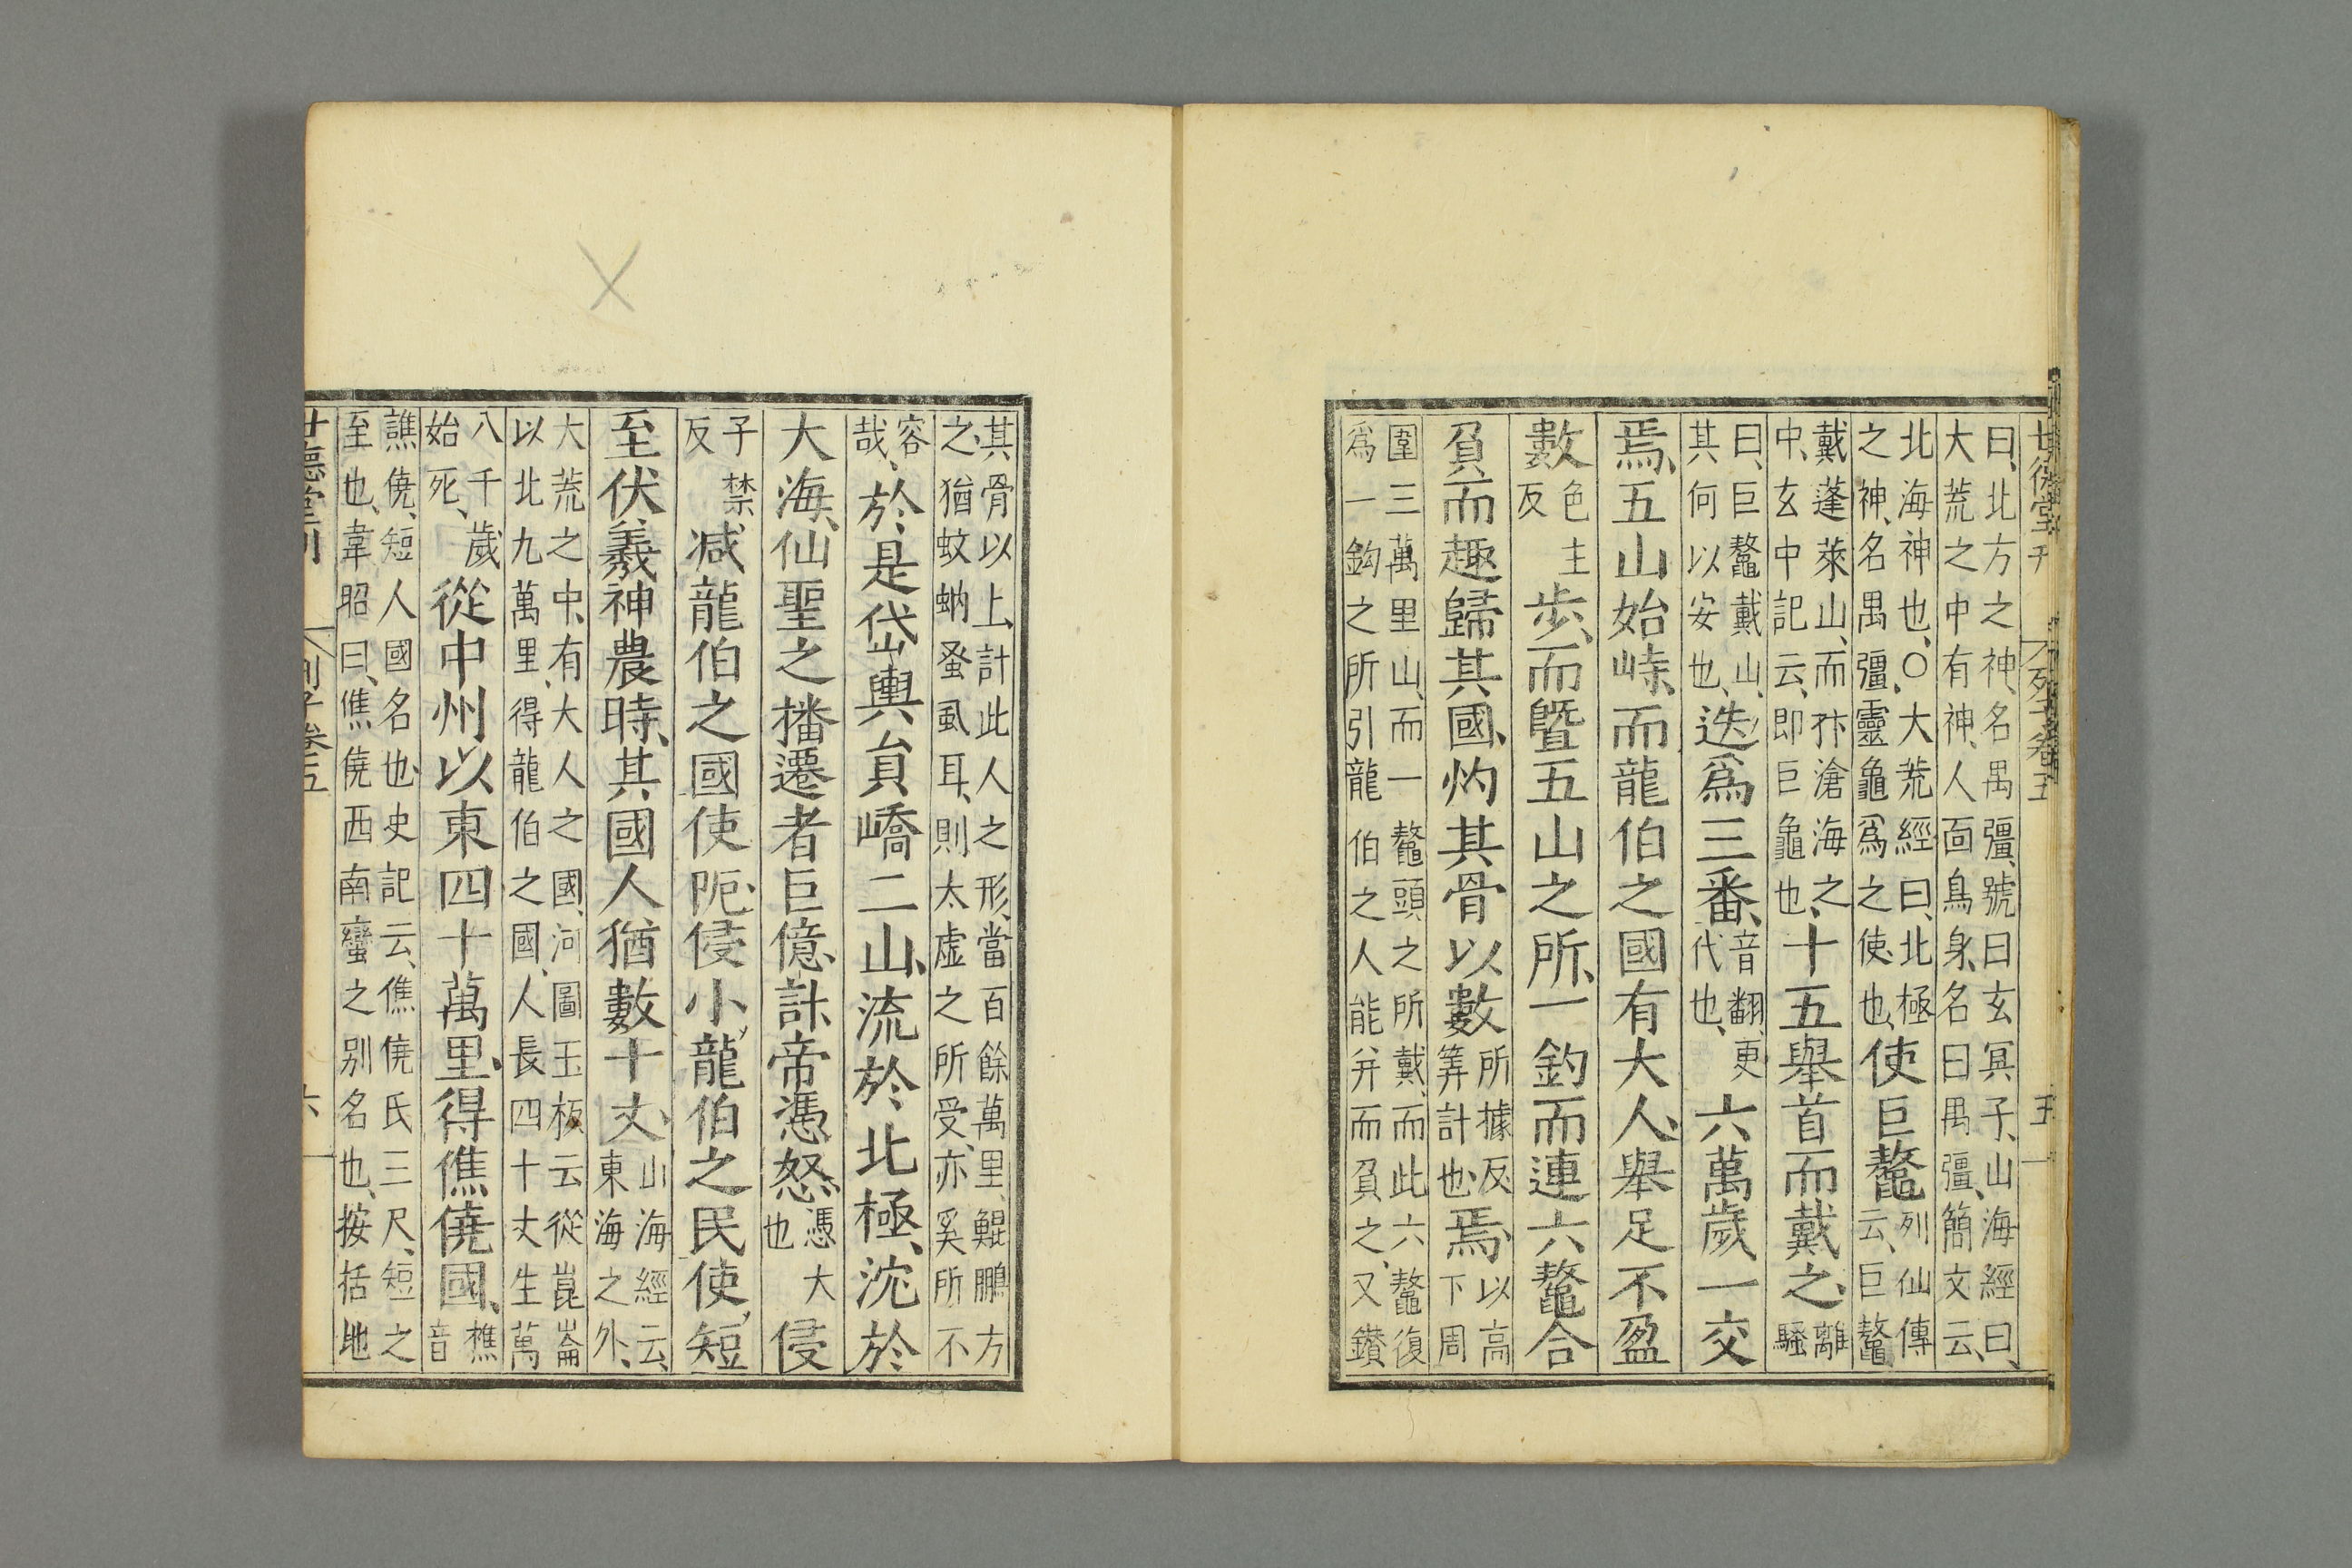 世德堂刊 列子卷五 五
曰、北方之神、名禺彊、號曰玄冥子、山海經曰、
大荒之中有神、人面鳥身、名曰禺彊、簡文云、
北海神也、○大荒經曰、北極之神、名禺彊、靈龜爲之使也、使巨鼇列仙傳云、巨鼇
戴蓬萊山、而抃滄海之、中、玄中記云、即巨龜也、十五舉首而戴之、離騷
曰、巨鼇戴山、其何以安也、迭爲三番、音翻、更代也、六萬歲一交
焉、五山始峙、而龍伯之國有大人、舉足不盈
數色主反步、而暨五山之所、一釣而連六鼇合
負而趣歸其國、灼其骨以數所據反、筭計也、焉、以高下周
圍三萬里山、而一鼇頭之所戴、而此六鼇復
爲一鈎之所引龍伯之人能并而負之、又鑚
其骨以上、計此人之形、當百餘萬里、鯤鵬方
之、猶蚊蚋蚤虱耳、則太虛之所受、亦奚所不
容哉、於是岱輿員嶠二山、流於北極、沈於
大海、仙聖之播遷者巨億、計帝憑怒、憑大也侵
子禁、反減龍伯之國使阨、侵小龍伯之民使短
至伏羲神農時、其國人猶數十丈、山海經云、東海之外、
大荒之中、有大人之國、河圖玉板云從崑崙
以北九萬里、得龍伯之國、人長四十丈生萬
八千歲始死、從中州以東四十萬里、得僬僥國、樵音
譙僥、短人國名也、史記云、僬僥氏三尺、短之
至也、韋昭曰、僬僥西南蠻之別名也、按括地
世德堂刊 列子卷五 六